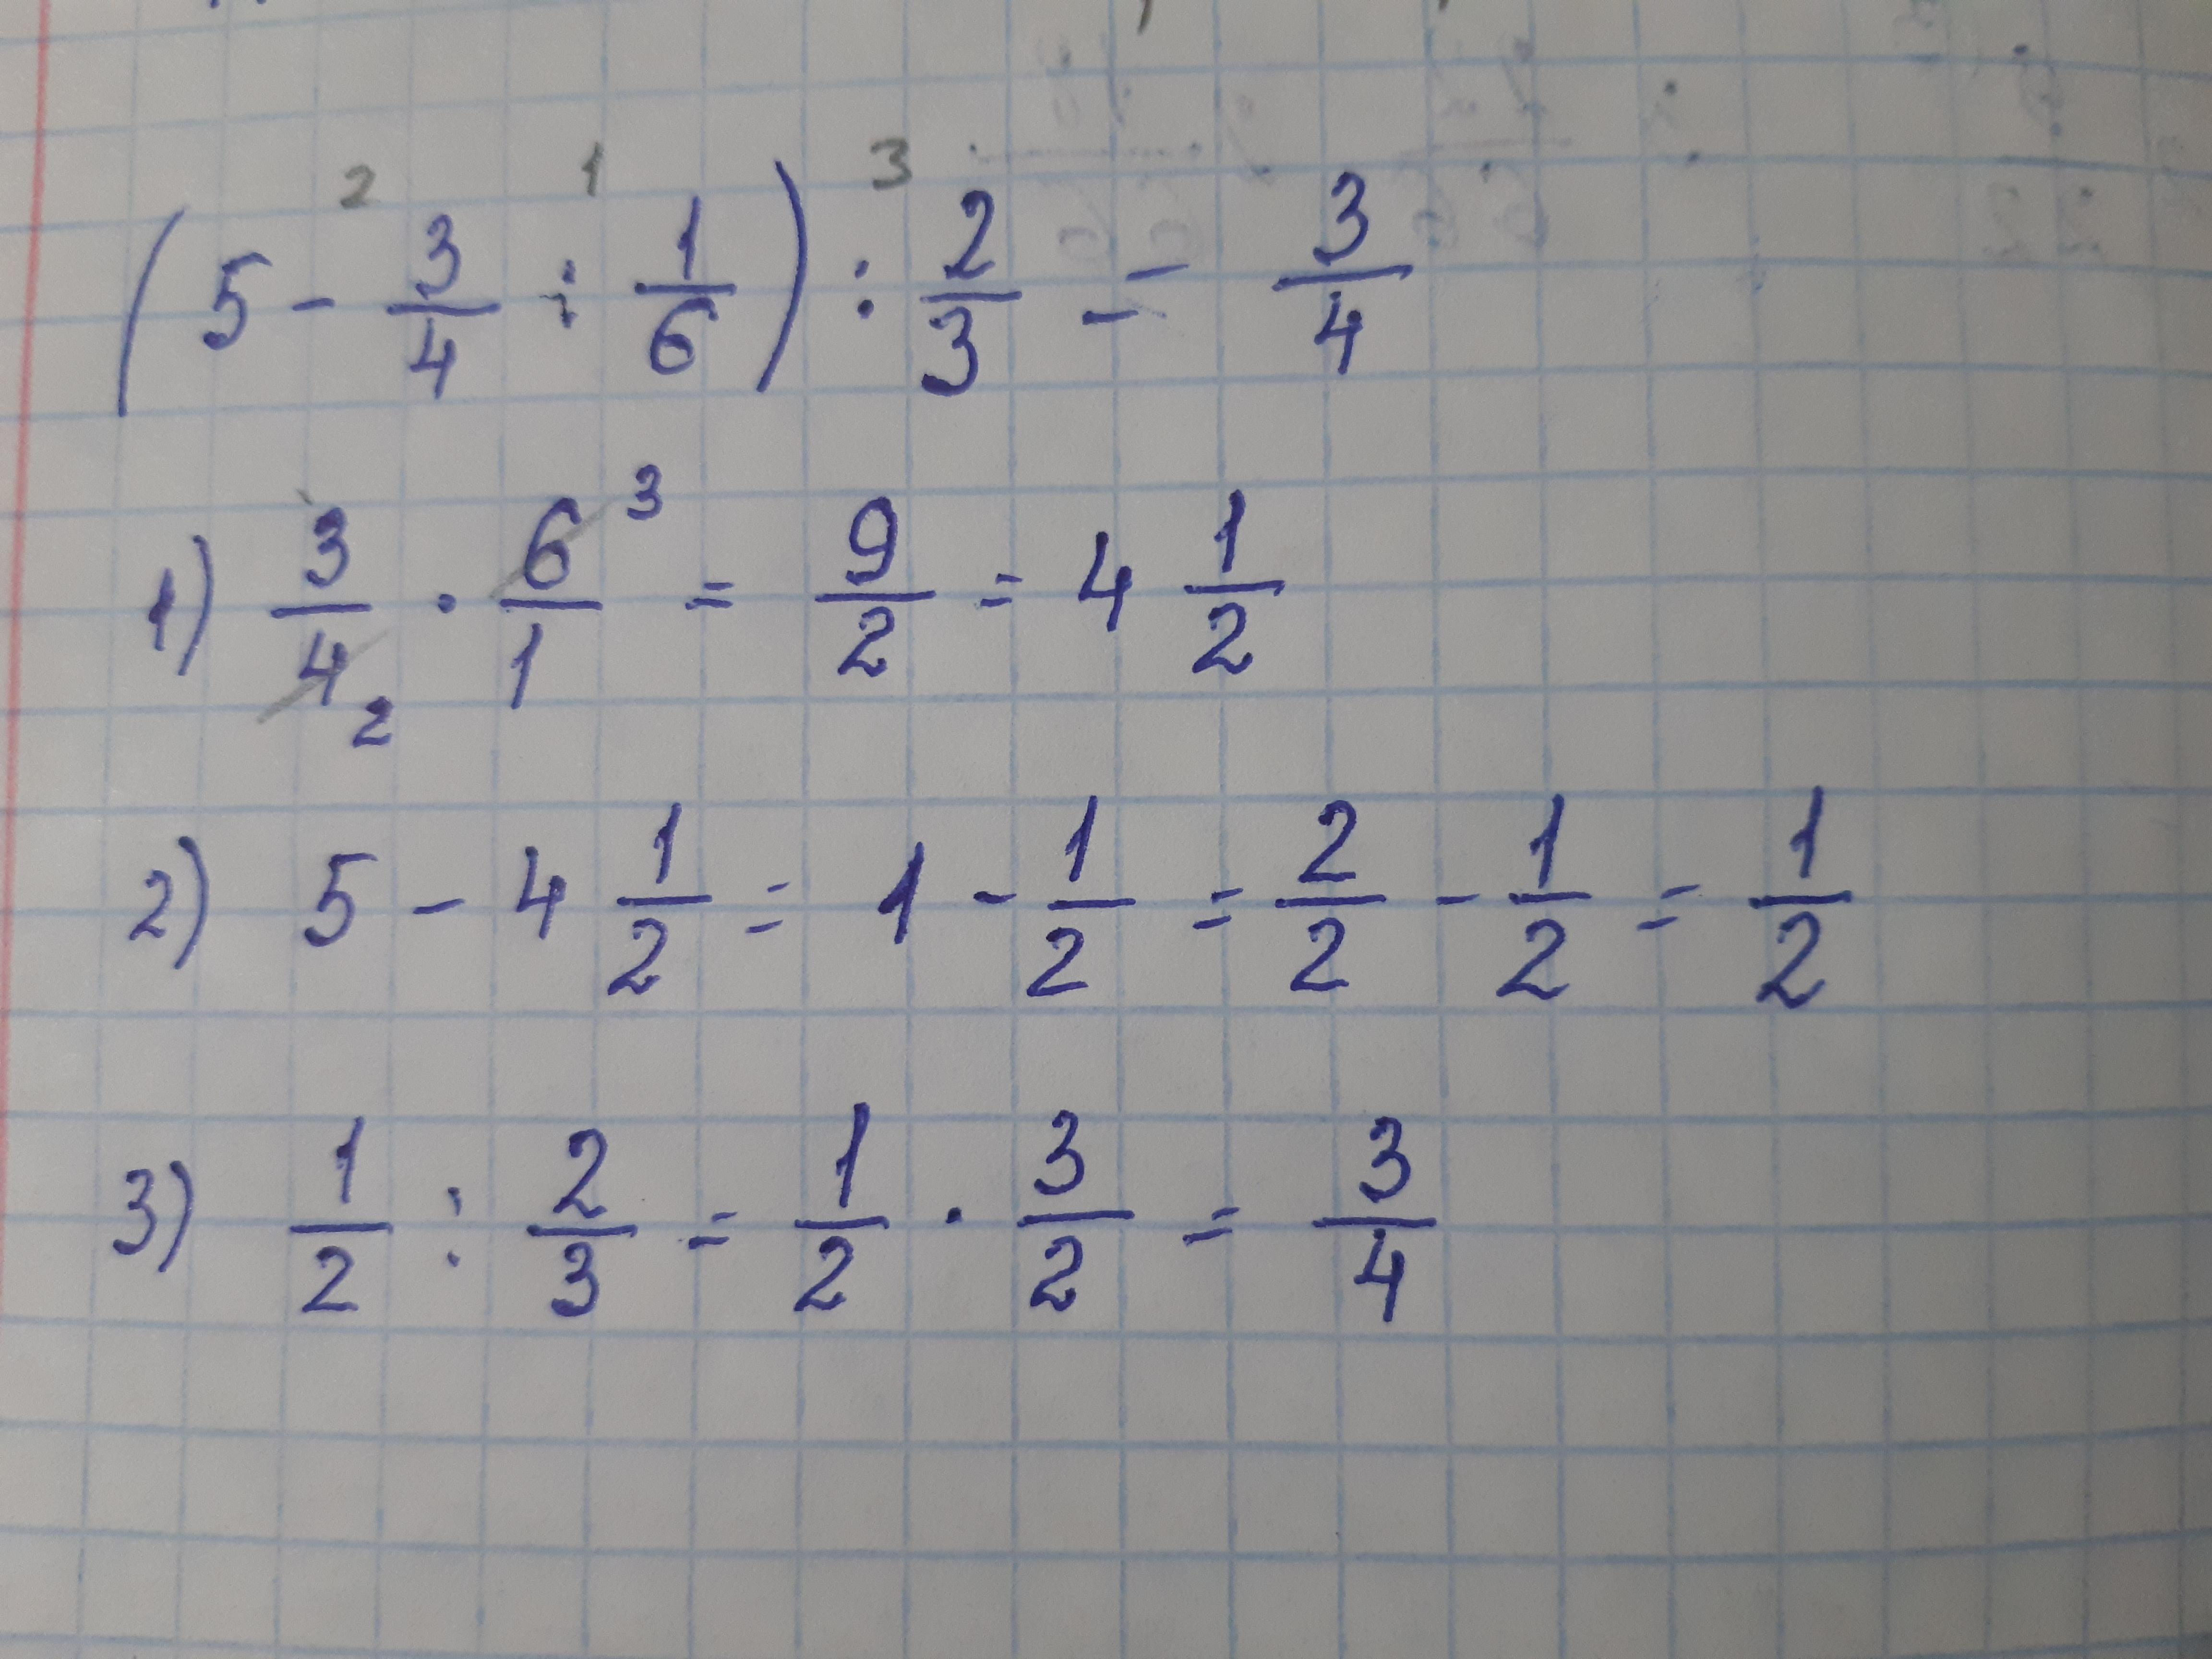 2 1 3
(5 - 3/4 : 1/6) : 2/3 = 3/4
1) 3/4 2 · 6/1 3 = 9/2 = 4 1/2
2) 5 - 4 1/2 = 1 - 1/2 = 2/2 - 1/2 = 1/2
3) 1/2 : 2/3 = 1/2 · 3/2 = 3/4